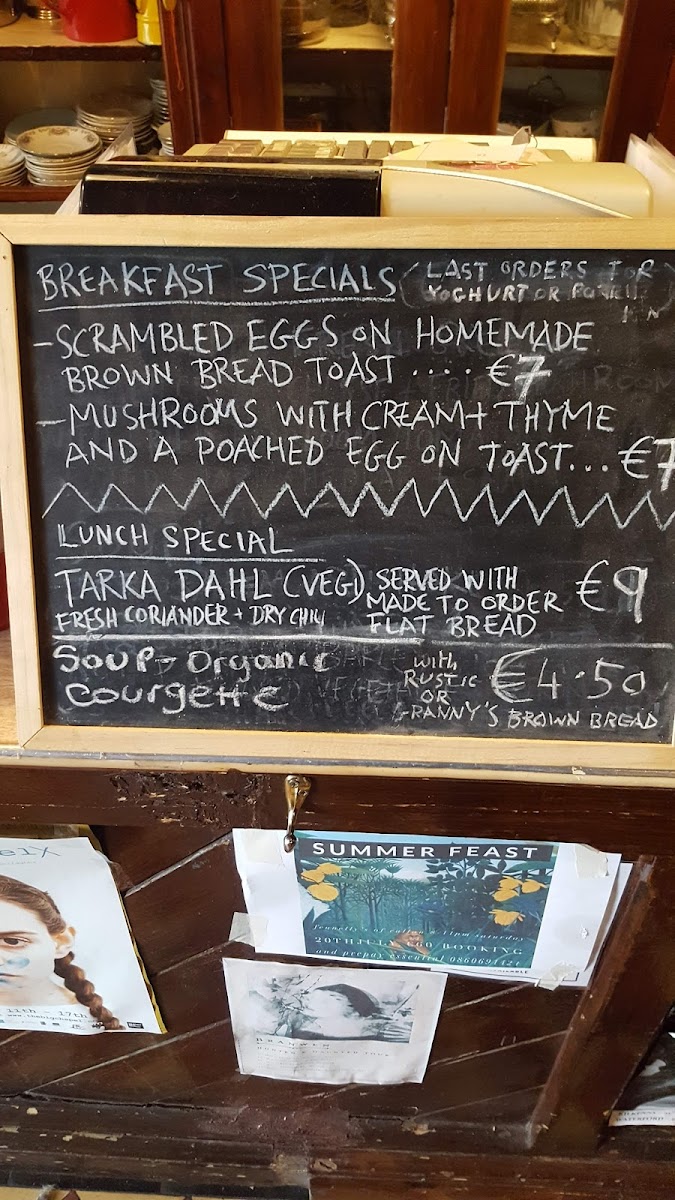 BREAKFAST SPECIALS
(LAST ORDERS FOR
YOGHURT OR
- SCRAMBLED EGGS ON HOMEMADE
BROWN BREAD TOAST .... €7
- MUSHROOMS WITH CREAM + THYME
AND A POACHED EGG ON TOAST... €7
LUNCH SPECIAL
TARKA DAHL (VEGI)
FRESH CORIANDER + DRY CHILI
SERVED WITH
MADE TO ORDER
FLAT BREAD
€9
Soup - Organic
Courgette
with
RUSTIC
OR
GRANNY'S BROWN BREAD
€4.50
SUMMER FEAST
11pm saturday
20TH JULY €60 BOOKING
and prepay essential 0860694424
11th - 17th